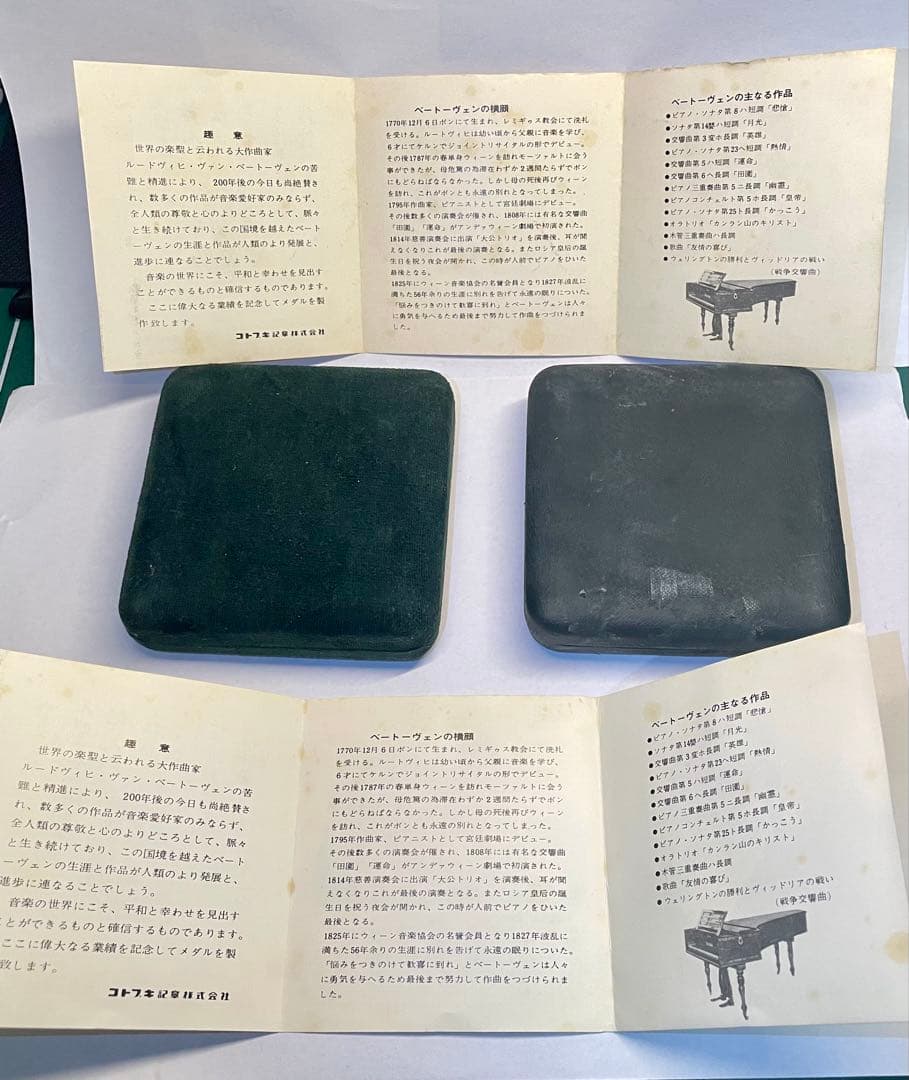 趣意
世界の楽聖と云われる大作曲家
ルードヴィヒ・ヴァン・ベートーヴェンの苦
難と精進により、200年後の今日も尚絶賛さ
れ、数多くの作品が音楽愛好家のみならず、
全人類の尊敬と心のよりどころとして、脈々
と生き続けており、この国境を越えたベート
ーヴェンの生涯と作品が人類のより発展と、
進歩に連なることでしょう。
音楽の世界にこそ、平和と幸わせを見出す
ことができるものと確信するものであります。
ここに偉大なる業績を記念してメダルを製
作致します。
コトブキ記章株式会社
ベートーヴェンの横顔
1770年12月6日ボンにて生まれ、レミギゥス教会にて洗礼
を受ける。ルートヴィヒは幼い頃から父親に音楽を学び、
6才にてケルンでジョイントリサイタルの形でデビュー。
その後1787年の春単身ウィーンを訪れモーツァルトに会う
事ができたが、母危篤の為滞在わずか2週間たらずでボン
にもどらねばならなかった。しかし母の死後再びウィーン
を訪れ、これがボンとも永遠の別れとなってしまった。
1795年作曲家、ピアニストとして宮廷劇場にデビュー。
その後数多くの演奏会が催され、1808年には有名な交響曲
「田園」「運命」がアンデァウィーン劇場で初演された。
1814年慈善演奏会に出演「大公トリオ」を演奏後、耳が聞
えなくなりこれが最後の演奏となる。またロシア皇后の誕
生日を祝う夜会が開かれ、この時が人前でピアノをひいた
最後となる。
1825年にウィーン音楽協会の名誉会員となり1827年波乱に
満ちた56年余りの生涯に別れを告げて永遠の眠りについた。
「悩みをつきのけて歓喜に到れ」とベートーヴェンは人々
に勇気を与へるため最後まで努力して作曲をつづけられま
した。
ベートーヴェンの主なる作品
●ピアノ・ソナタ第8ハ短調「悲愴」
●ソナタ第14嬰ハ短調「月光」
●交響曲第3変ホ長調「英雄」
●ピアノ・ソナタ第23ヘ短調「熱情」
●交響曲第5ハ短調「運命」
●交響曲第6ヘ長調「田園」
●ピアノ三重奏曲第5ニ長調「幽霊」
●ピアノコンチェルト第5ホ長調「皇帝」
●ピアノ・ソナタ第25ト長調「かっこう」
●オラトリオ「カンラン山のキリスト」
●木管三重奏曲ハ長調
●歌曲「友情の喜び」
●ウェリングトンの勝利とヴィッドリアの戦い
(戦争交響曲)
趣意
世界の楽聖と云われる大作曲家
ルードヴィヒ・ヴァン・ベートーヴェンの苦
難と精進により、200年後の今日も尚絶賛さ
れ、数多くの作品が音楽愛好家のみならず、
全人類の尊敬と心のよりどころとして、脈々
と生き続けており、この国境を越えたベート
ーヴェンの生涯と作品が人類のより発展と、
進歩に連なることでしょう。
音楽の世界にこそ、平和と幸わせを見出す
ことができるものと確信するものであります。
ここに偉大なる業績を記念してメダルを製
致します。
コトブキ記章株式会社
ベートーヴェンの横顔
1770年12月6日ボンにて生まれ、レミギゥス教会にて洗礼
を受ける。ルートヴィヒは幼い頃から父親に音楽を学び、
6才にてケルンでジョイントリサイタルの形でデビュー。
その後1787年の春単身ウィーンを訪れモーツァルトに会う
事ができたが、母危篤の為滞在わずか2週間たらずでボン
にもどらねばならなかった。しかし母の死後再びウィーン
を訪れ、これがボンとも永遠の別れとなってしまった。
1795年作曲家、ピアニストとして宮廷劇場にデビュー。
その後数多くの演奏会が催され、1808年には有名な交響曲
「田園」「運命」がアンデァウィーン劇場で初演された。
1814年慈善演奏会に出演「大公トリオ」を演奏後、耳が聞
えなくなりこれが最後の演奏となる。またロシア皇后の誕
生日を祝う夜会が開かれ、この時が人前でピアノをひいた
最後となる。
1825年にウィーン音楽協会の名誉会員となり1827年波乱に
満ちた56年余りの生涯に別れを告げて永遠の眠りについた。
「悩みをつきのけて歓喜に到れ」とベートーヴェンは人々
に勇気を与へるため最後まで努力して作曲をつづけられま
した。
ベートーヴェンの主なる作品
●ピアノ・ソナタ第8ハ短調「悲愴」
●ソナタ第14嬰ハ短調「月光」
●交響曲第3変ホ長調「英雄」
●ピアノ・ソナタ第23ヘ短調「熱情」
●交響曲第5ハ短調「運命」
●交響曲第6ヘ長調「田園」
●ピアノ三重奏曲第5ニ長調「幽霊」
●ピアノコンチェルト第5ホ長調「皇帝」
●ピアノ・ソナタ第25ト長調「かっこう」
●オラトリオ「カンラン山のキリスト」
●木管三重奏曲ハ長調
●歌曲「友情の喜び」
●ウェリングトンの勝利とヴィッドリアの戦い
(戦争交響曲)